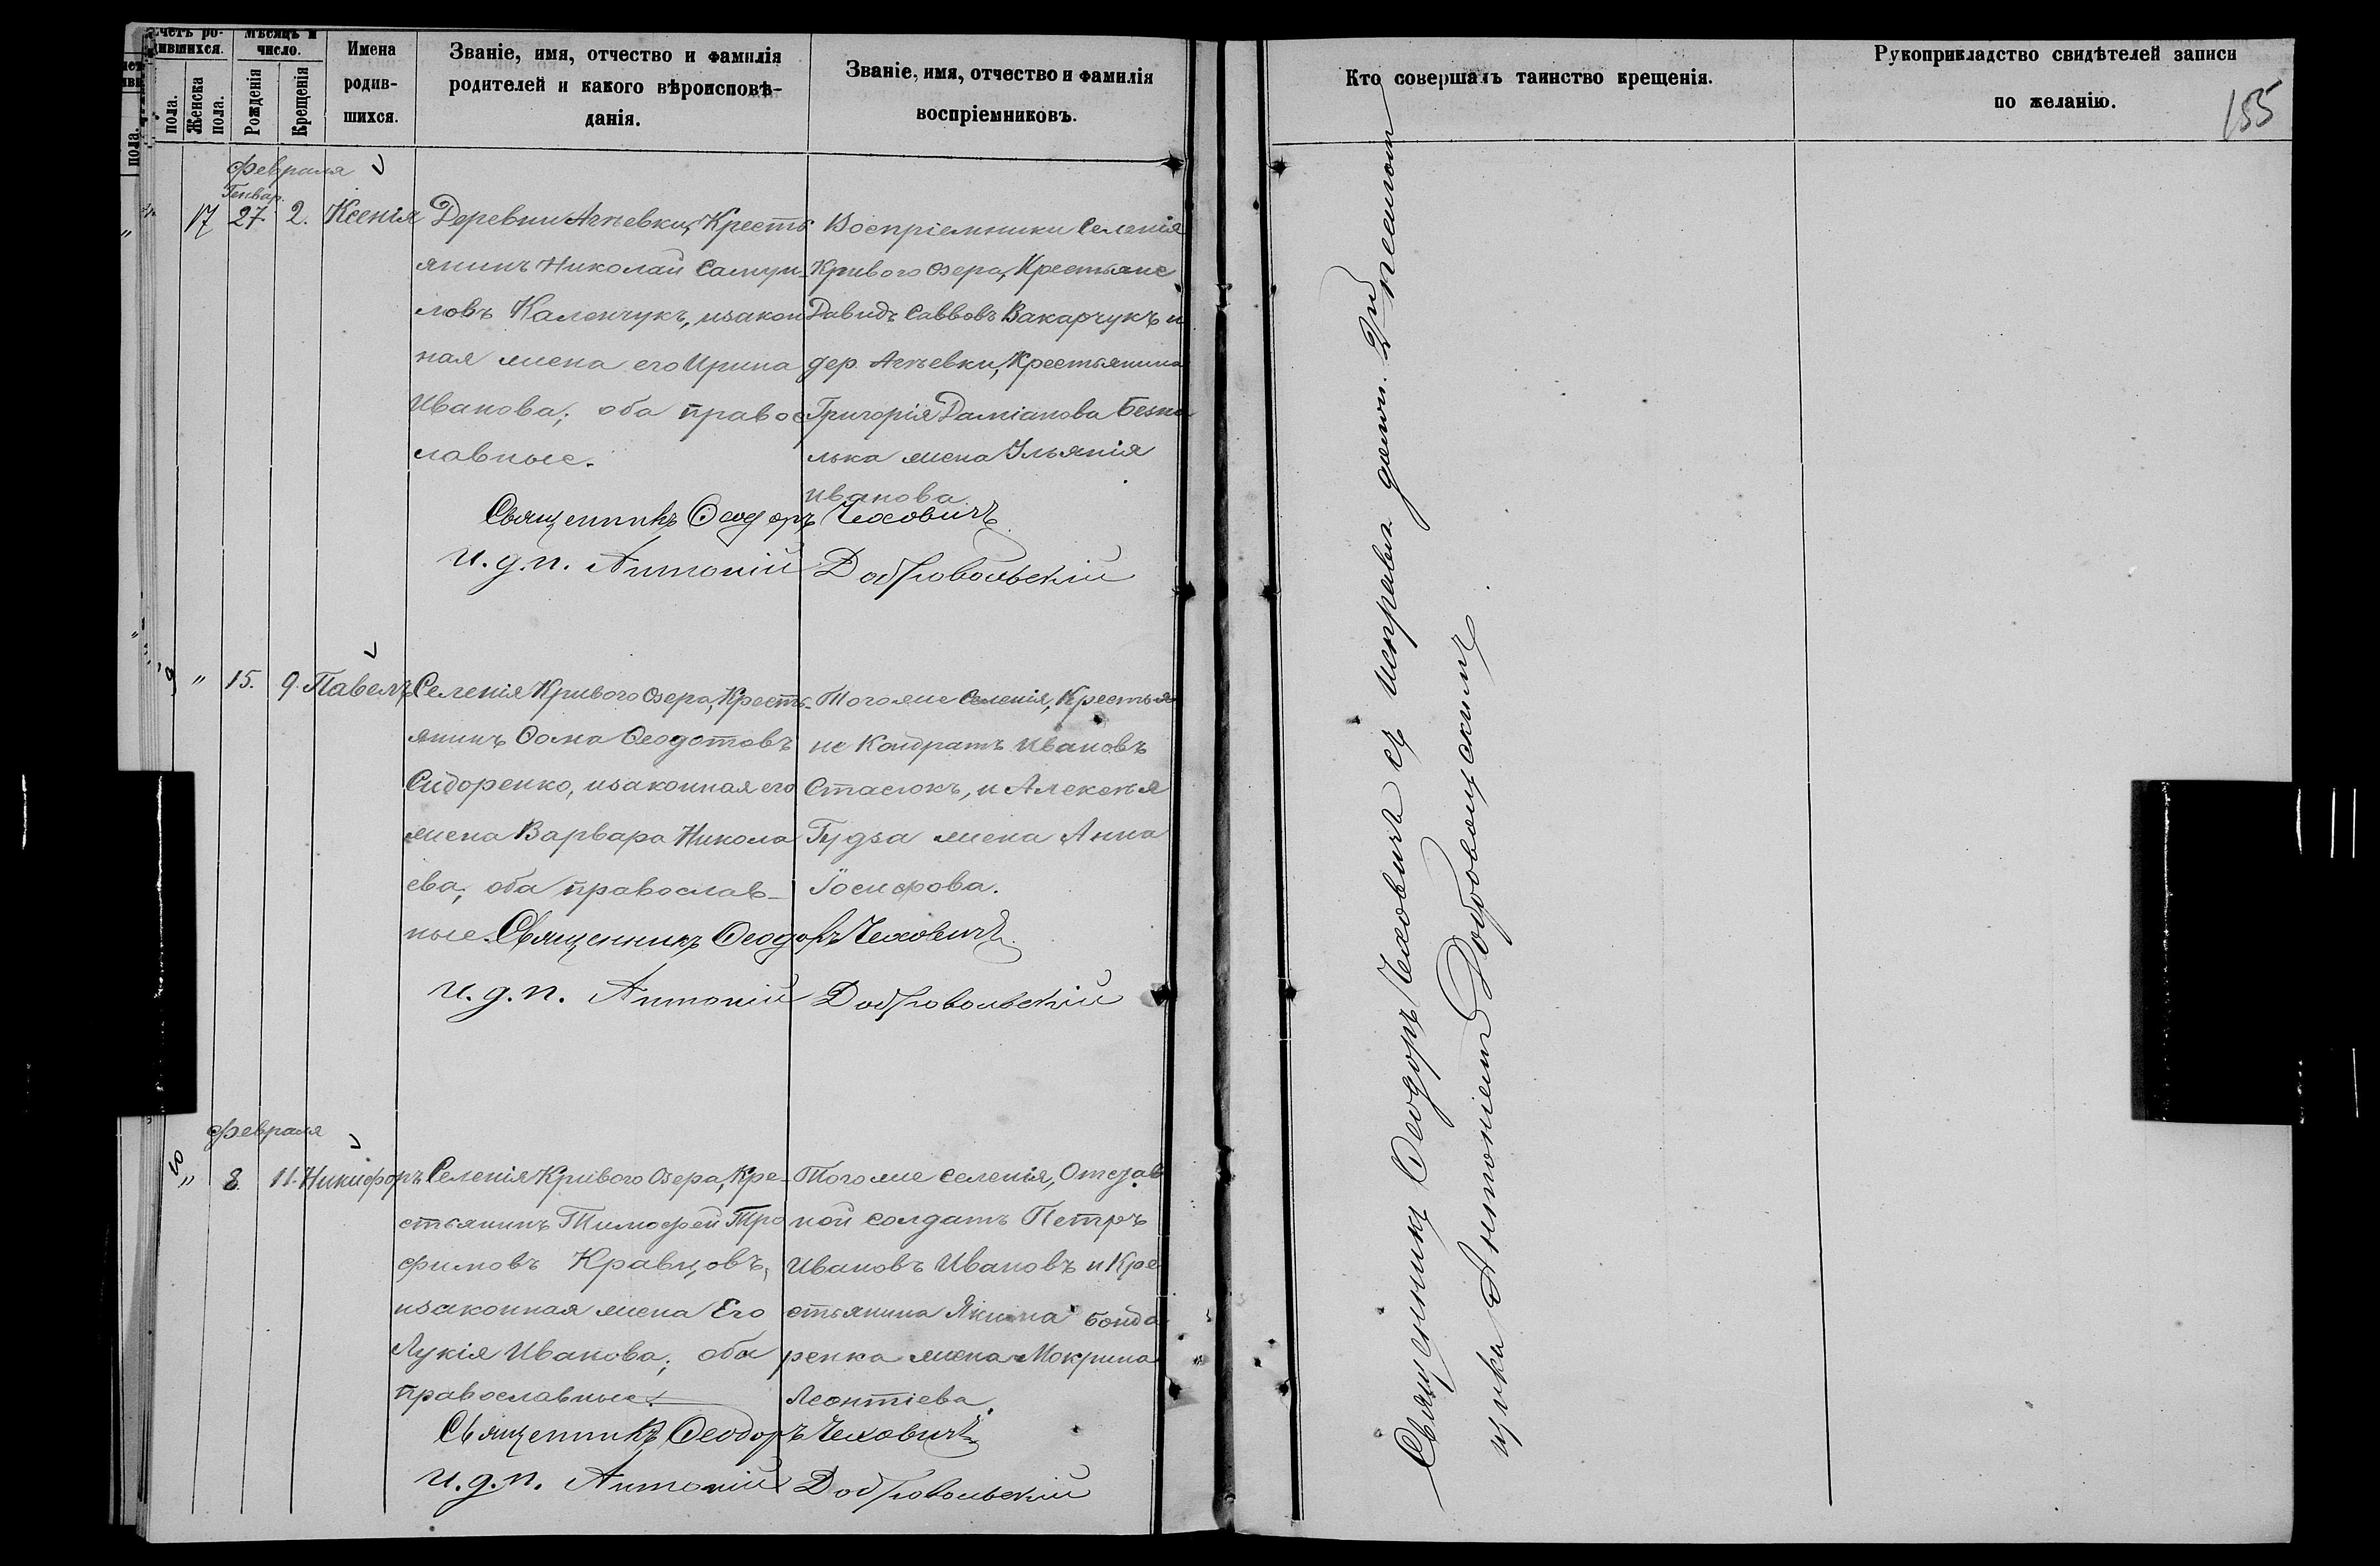 Счетъ ро-
дившихся.
Мѣсяцъ и
число.
пола.
Женска
пола.
Рожденія
Крещенія
Имена
родив-
шихся.
Званіе, имя, отчество и фамилія
родителей и какого вѣроисповѣ-
данія.
Званіе, имя, отчество и фамилія
воспріемниковъ.
Кто совершалъ таинство крещенія.
Рукоприкладство свидѣтелей записи
по желанію.
155
Февраля
Генвар.
17 27. 2. Ксенія
Деревни Кресть
янинъ Николай Самуи-
ловъ Каленчукъ, изакон
ная жена его Ирина
Иванова; оба правос
лавные.
Воспріемники Селенія
Кривого Озера, Крестьяне
Давидъ Саввовъ Вакарчукъ и
дер. Крестьянина
Григорія Даміанова Безпа
лька жена Ульянія
Иванова
Священникъ Ѳеодоръ Чеховичъ
И. д. п. Антоній Добровольскій
9 " 15. 9. Павелъ
Селенія Кривого Озера, Кресть-
янинъ Ѳома Ѳеодотовъ
Сидоренко, изаконная его
жена Варвара Никола
ева, оба православ-
ные.
Тогоже Селенія, Крестья
не Кондратъ Ивановъ
Стасюкъ, и Алексѣя
Гудза жена Анна
Іосифова.
Священникъ Ѳеодоръ Чеховичъ
И. д. п. Антоній Добровольскій
Февраля
10 " 8. 11. Никифоръ
Селенія Кривого Озера, Кре-
стьянинъ Тимофей Тро
фимовъ Кравцовъ,
изаконная жена Его
Лукія Иванова; оба
православные.
Тогоже селенія, Отстав
ной солдатъ Петръ
Ивановъ Ивановъ и Кре
стьянина Якима Бонда
ренка жена Мокрина
Леонтіева.
Священникъ Ѳеодоръ Чеховичъ
И. д. п. Антоній Добровольскій
Священникъ Ѳеодоръ Чеховичъ съ исправл. должн. псалом
щика Антоніемъ